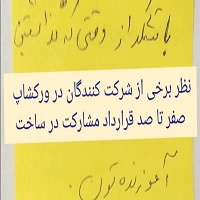 با تشکر از وقتی که گذاشتین
نظر برخی از شرکت کنندگان در ورکشاپ
صفر تا صد قرارداد مشارکت در ساخت
آموزنده تون.